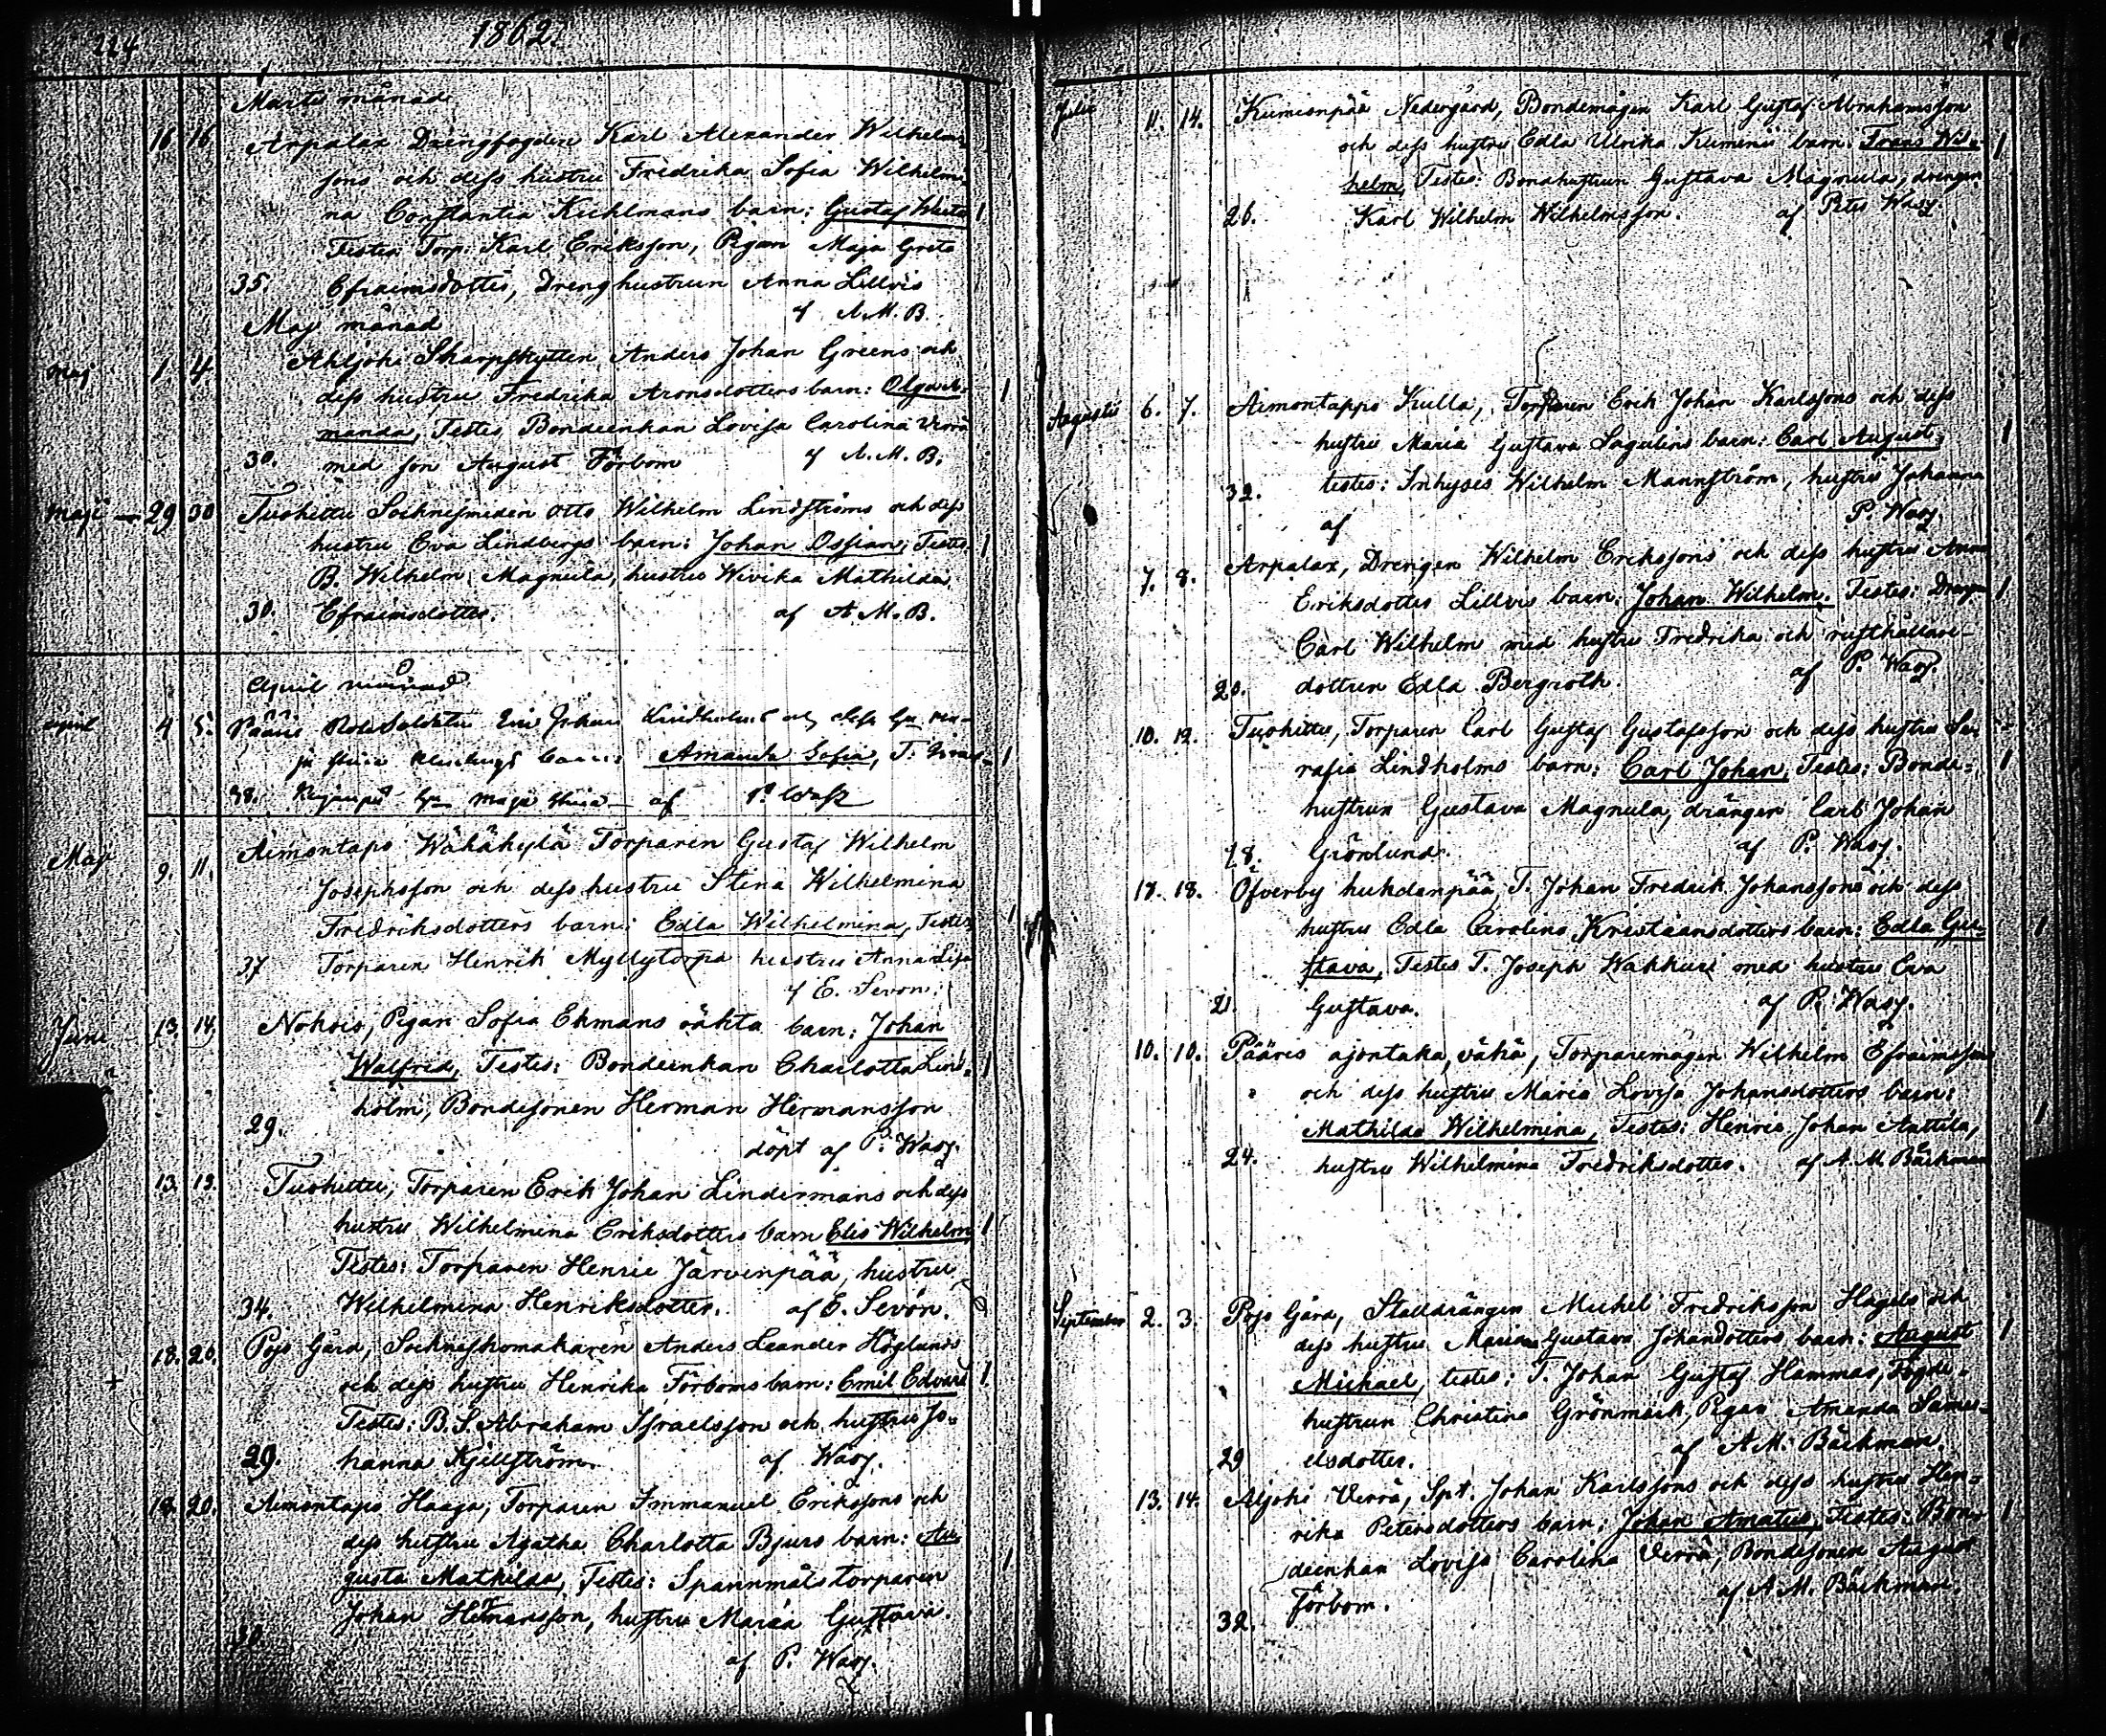 224
1862.
Marti månad
16 16 Arpalax Drengfogden Karl Alexander Wilhelms=
sons och dess hustru Fredrika Sofia Wilhelmi=
na Constantia Kuhlmans barn: Gustaf 1
Testes Torp. Karl Eriksson, Pigan Maja Greta
35. Efraimsdotter, Drenghustrun Anna Lillvis
af A. M. B.
Maj månad
Maj 1. 4. Ahljoki Skarpskytten Anders Johan Greens och
dess hustru Fredrika Aronsdotters barn: Olga A= 1
manda, Testes Bondeenkan Lovisa Carolina Verrä
30. med son August Förbom af A. M. B.
Maji — 29 30 Tuohittu Socknesmeden Otto Wilhelm Lindströms och dess
hustru Eva Lindbergs barn: Johan Ossian; Testes, 1
B. Wilhelm Magnula, hustru Wivika Mathilda
30. Efraimsdotter. af A. M. B.
April månad
April 4 5. Pääris Rote Soldaten Johan Lindholms och dess
barn: Amanda Sofia, T. 1
38. Maja Stina — af P. Wasz
Maji 9. 11. Aimontapo Wähäkylä Torparen Gustaf Wilhelm
Josephsson och dess hustru Stina Wilhelmina
Fredriksdotters barn: Edla Wilhelmina, Testes 1
37 Torparen Henrik Myllytorpa hustru Anna Lisa
af E. Sevon.
Juni 13. 14. Nokois, Pigan Sofia Ekmans oäkta barn: Johan
Walfrid, Testes: Bondeenkan Charlotta Lind= 1
holm, Bondesonen Herman Hermansson
29.
döpt af P. Wasz.
13. 13. Tuohittu, Torparen Erik Johan Lindermans och dess
hustru Wilhelmina Eriksdotters barn Elis Wilhelm 1
Testes: Torparen Henric Järvenpää, hustru
34. Wilhelmina Henriksdotter. af E. Sevón.
18. 20. Pojo Gård, Sockneskomakaren Anders Leander Höglunds
och dess hustru Henrika Förboms barn: Emil Edvard 1
Testes: B. S. Abraham Israelsson och hustru Jo=
29. hanna Kjellström. af Wasz.
18. 20. Aimontapo Haaga, Torparen Immanuel Erikssons och
dess hustru Agatha Charlotta Bjurs barn: Au=
gusta Mathilda, Testes: Spannmålstorparen 1
Johan Hermansson, hustru Maria Gustava.
30
af P. Wasz.
Julii 11. 14. Kumionpää Nedergård, Bondemågen Karl Gustaf Abrahamsson
och dess hustru Edla Ulrika Kumenii barn: Frans Wil= 1
helm, Testes: Bondhustrun Gustava Magnula, drengen
26. Karl Wilhelm Wilhelmsson. af P. Wasz.
Augusti 6. 7. Aimontappo Kulla, Torparen Erik Johan Karlssons och dess
hustru Maria Gustava Sagulins barn: Carl August, 1
32. testes: Inhyses Wilhelm Mannström, hustru Johanna
af P. Wasz.
7. 8. Arpalax, Drengen Wilhelm Erikssons och dess hustru Anna
Eriksdotter Lillvis barn: Johan Wilhelm. Testes: Drengen 1
Carl Wilhelm med hustru Fredrika och rusthållare-
20. dottren Edla Bergroth. af P. Wasz.
10. 12. Tuohittu, Torparen Carl Gustaf Gustafsson och dess hustru Se=
rafia Lindholms barn: Carl Johan, Testes: Bonde= 1
hustrun Gustava Magnula, drängen Carl Johan
28. Grönlund. af P. Wasz.
17. 18. Öfverby huhdanpää, T. Johan Fredrik Johanssons och dess
hustru Edla Carolina Kristiansdotters barn: Edla Gus= 1
stava, Testes T. Joseph Wakkuri med hustru Eva
21. Gustava. af P. Wasz.
10. 10. Pääris ajontaka, vähä, Torparemågen Wilhelm Efraimsson
och dess hustru Maria Lovisa Johansdotters barn:
Mathilda Wilhelmina, Testes: Henric Johan Anttila, 1
24. hustru Wilhelmina Fredriksdotter. af A. M. Bäckman
September 2. 3. Pojo Gård, Stalldrängen Michel Fredriksson Hagels och
dess hustru Maria Gustava Johansdotters barn: August 1
Michael, testes: T. Johan Gustaf Hammar, Fogde=
hustrun Christina Grönmark, Pigan Amanda Samu=
29 elsdotter. af A. M. Bäckman.
13. 14. Aljoki Verrä, Spt. Johan Karlssons och dess hustru Hen=
rika Petersdotters barn: Johan Amatus, Testes: Bon= 1
deenkan Lovisa Carolina Verrä, Bondesonen August
32. Förbom. af A. M. Bäckman.